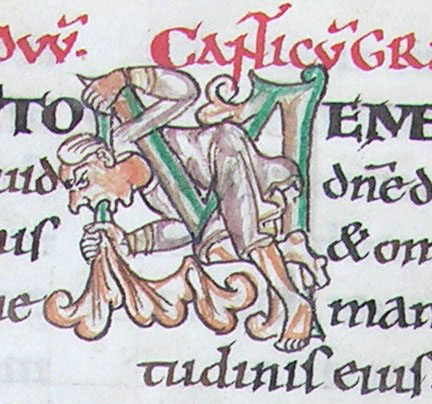 CANTICŪ GRA
TO MEME
uid dn̄e d
uis & om
ue man
tudinis eius